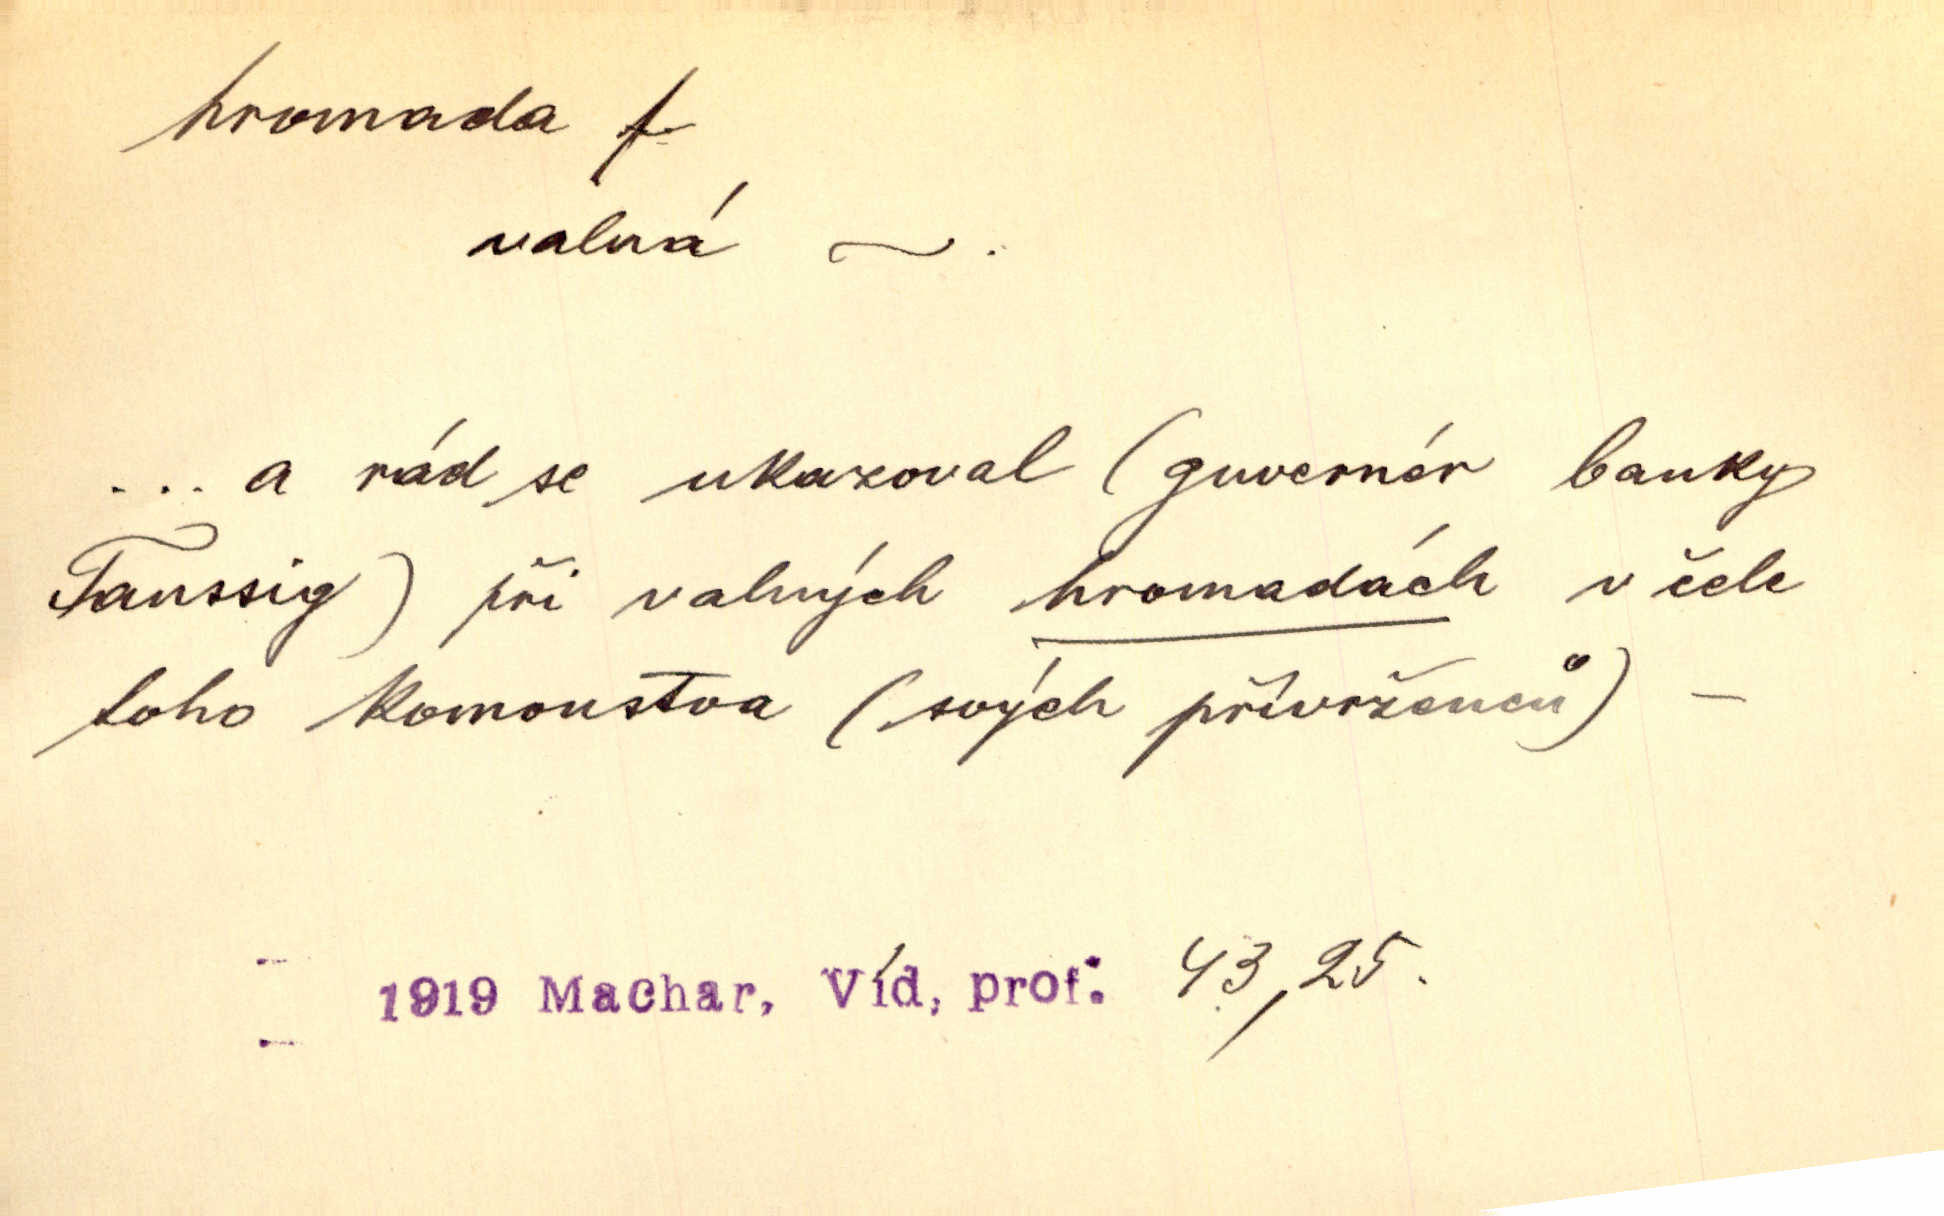 hromada f.
valná ~.
... a rád se ukazoval (guvernér banky
Taussig) při valných hromadách v čele
toho komonstva (svých přívrženců) –
1919 Machar, Víd, prof. 43,25.